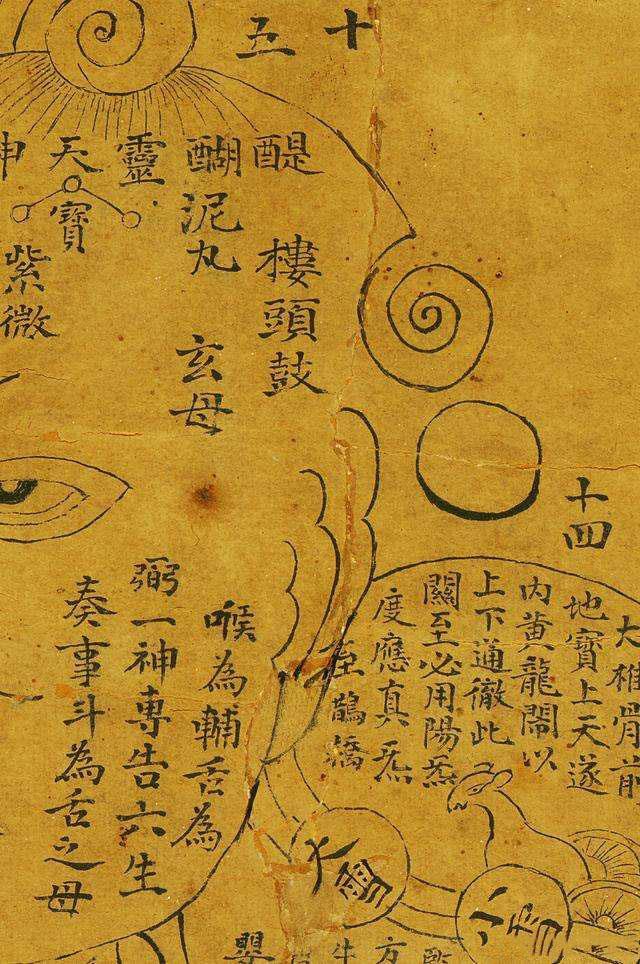 十五
醍醐
靈
天寶
神
泥丸
樓頭鼓
玄母
紫微
十四
大椎骨前
地寶上天遂
内黃龍閙以
上下通徹此
關至必用陽炁
度應真炁
至鵲橋
喉為輔舌為
弼一神專告六生
奏事斗為舌之母
大雪
小雪
方
嬰